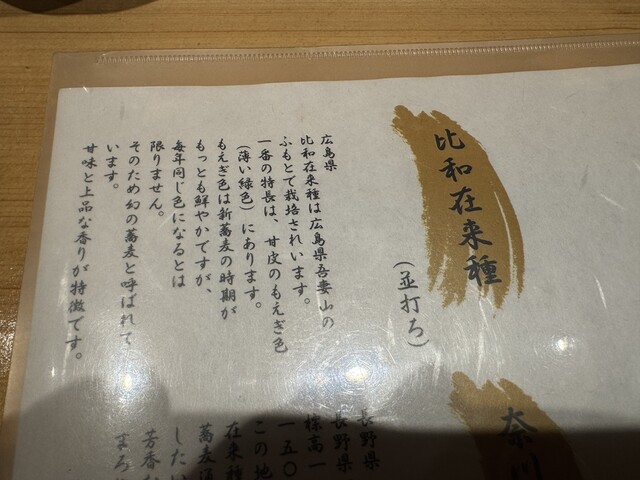 比和在来種
(並打ち)
広島県
比和在来種は広島県吾妻山の
ふもとで栽培されいます。
一番の特長は、甘皮のもえぎ色
(薄い緑色)にあります。
もえぎ色は新蕎麦の時期が
もっとも鮮やかですが、
毎年同じ色になるとは
限りません。
そのため幻の蕎麦と呼ばれて
います。
甘味と上品な香りが特徴です。
奈川
長野県
長野県
標高一
一五〇
この地
在来種
蕎麦通
したい
芳香
まろ